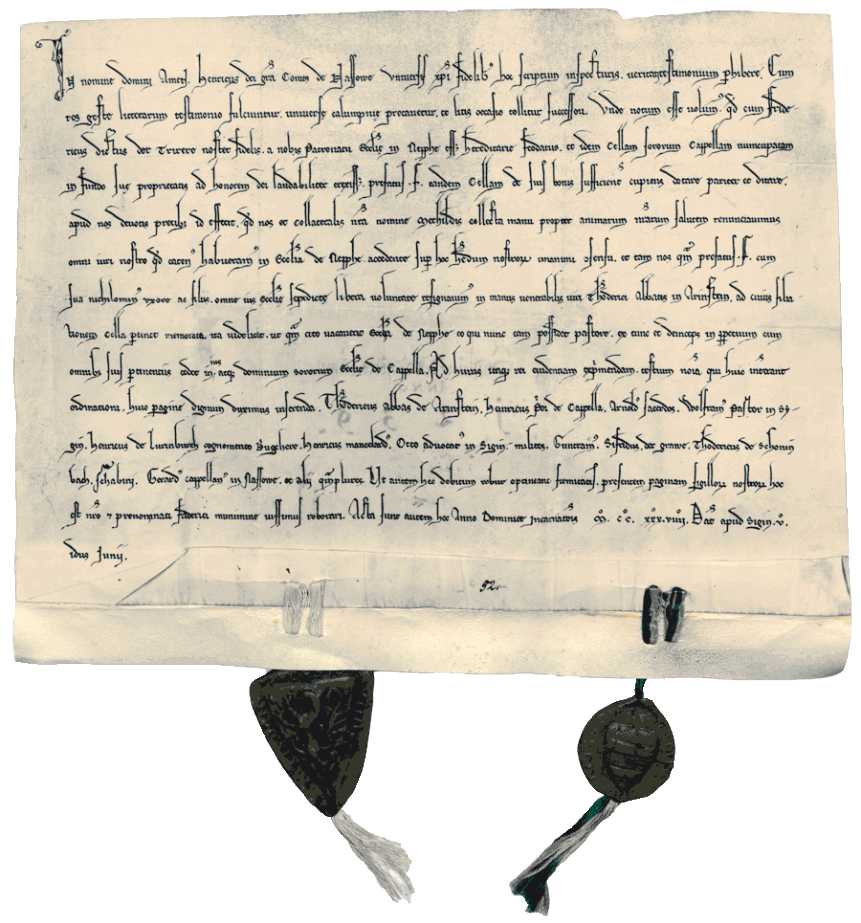 In nomine domini Amen. Henricus dei gra Comes de Nassowe vniuersis xpi fidelib' hoc scriptum inspecturis. veritatis testimonium phibere. Cum
res geste litterarum testimonio fulciuntur. vniuerse calumpnie precauetur. et litis occasio tollitur successori. Vnde notum esse volum' qd cum fride-
ricus dictus det Trivere noster fidelis. a nobis Patronatu Ecclie in Nepphe ess; hereditarie feodatus. et idem Cellam sororum Cappellam nuncupatam
in fundo sue proprietatis ad honorem dei laudabiliter erexiss;. prefatus .f. eandem Cellam de suis bonis sufficient' cupiens dotare pariter et ditare.
apud nos deuotis precibus id effecit. qd nos et collateralis nra nomine Methildis collecta manu propter animarum nrarum salutem renunciauimus
omni iuri nostro qd hacten' habueram' in Ecclia de Nepphe. accedente sup hoc hedum nostrorum unanimi osensu. et tam nos qm prefatus .f. cum
sua nichilomin' vxore ac filiis. omne ius Ecclie sepedicte libera voluntate resignauim' in manus venerabilis viri Thiderici Abbatis in Arinstein. ad cuius filia-
tionem cella ptinet memorata. ita videlicet. ut qm cito vacauerit Ecclia de Nepphe et qui nunc eam possidet pastore. ex tunc et deinceps in ppetuum cum
omnibus suis ptinentiis cedet in ius atq; dominium sororum Ecclie de Cappella. Ad huius itaq; rei euidentiam exprimendam. testium noia. qui huic intererant
ordinationi. huic pagine dignum duximus inserenda. Thidericus abbas de Arinstein. Henricus por de Cappella. Arnold' sacerdos. Wolfram' Pastor in Si-
gin. Henricus de Lurinburch cognomento Bughere. Henricus mancelard'. Otto aduocat' in Sigin. milites. Guntram'. Sifridus. det graue. Thidericus de Schonin
bach. scabini. Gerard' cappellan' in Nassowe. et alii qmplures. Vt autem hec debitum robur optineant firmitatis. presentem paginam sigillorum nostrorum hoc
est nro et prenominati fiderici munimine iussimus roborari. Acta sunt autem hec Anno Dominice incarnatois M. CC. xxx.viiii. Dat apud Sigin. v.
idus Junii.
52